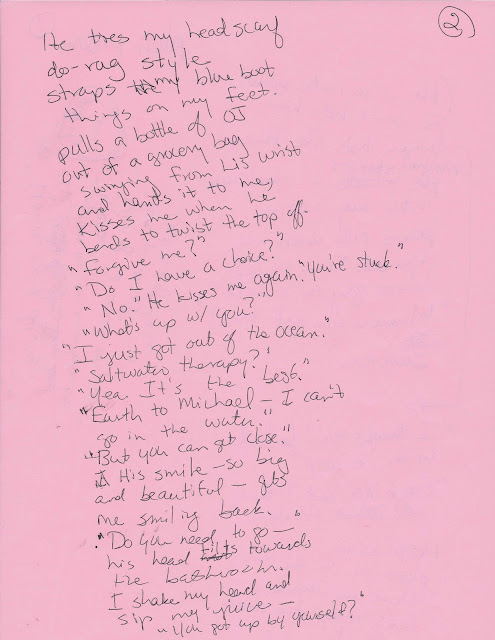 2
He ties my headscarf
do-rag style
straps my blue boot
things on my feet.
pulls a bottle of OJ
out of a grocery bag
swinging from his wrist
and hands it to me,
kisses me when he
bends to twist the top off.
"Forgive me?"
"Do I have a choice?"
"No." He kisses me again. "You're stuck."
"What's up w/ you?"
"I just got out of the ocean."
"Saltwater therapy?"
"Yea. It's the best."
"Earth to Michael – I can't
go in the water."
"But you can get close."
His smile – so big
and beautiful – gets
me smiling back.
"Do you need to go –"
his head tilts towards
the bathroom.
I shake my head and
sip my juice –
"You got up by yourself?"